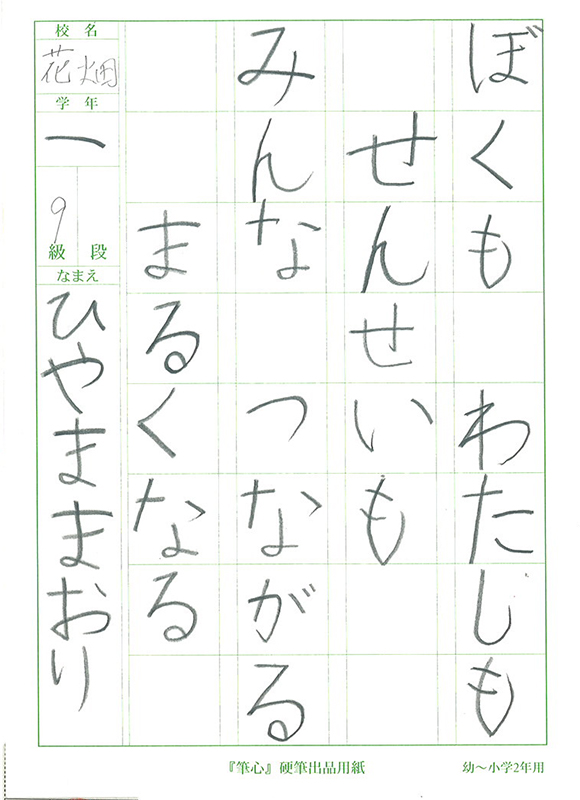 ぼくも わたしも
せんせいも
みんな つながる
まるくなる
校名
花畑
学年
一
9
級 段
なまえ
ひやままおり
『筆心』硬筆出品用紙
幼～小学2年用